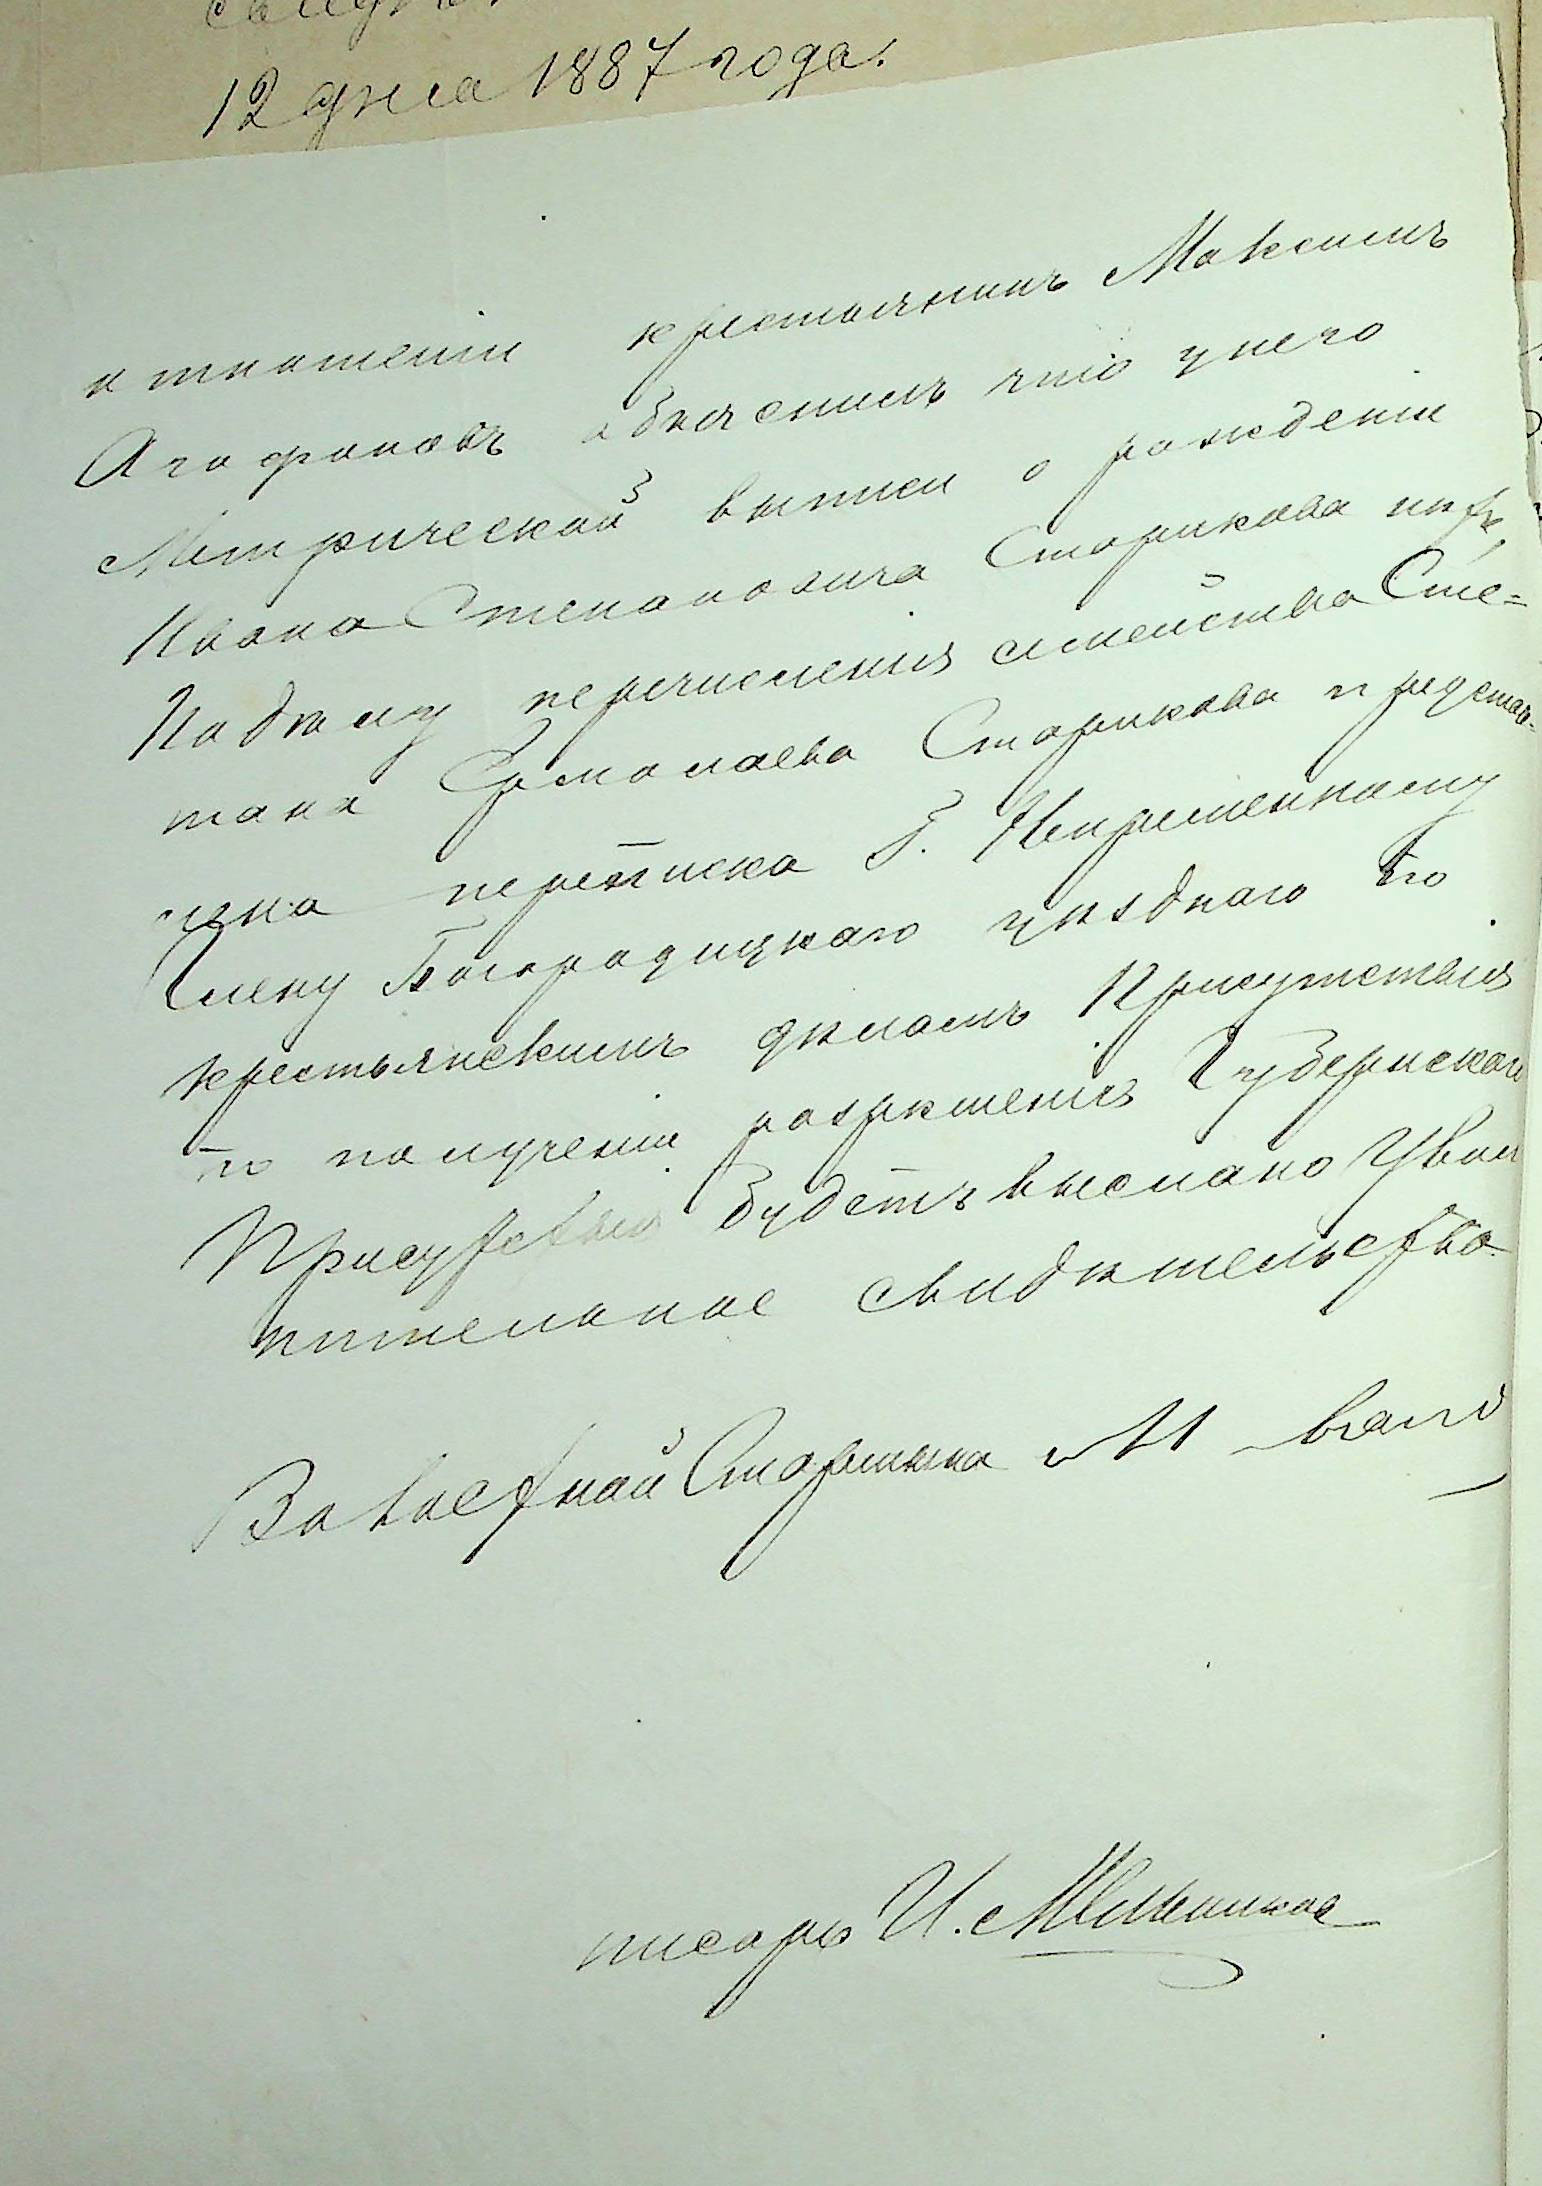 12 дня 1887 года.
отношеніи крестьянинъ Максимъ
Агафоновъ объяснилъ что у него
Метрической выписи о рожденіи
Ивана Степановича Старикова нѣтъ,
По дѣлу перечисленія семейства Сте=
пана Ермолаева Старикова представ=
лена переписка Г. Непременному
Члену Богородицкаго уѣзднаго по
крестьянскимъ дѣламъ Присутствія
по полученіи разрѣшенія Губернскаго
Присутствія будетъ выслано Уволь
нительное свидѣтельство.
За волостной Старшина
писарь И.